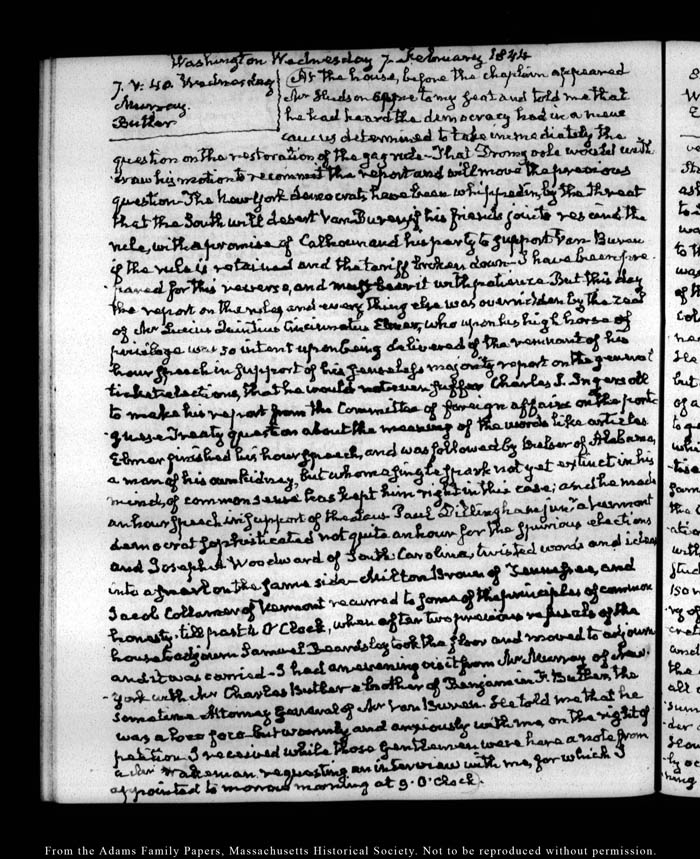 Washington Wednesday 7. February 1844
7. V: 40. Wednesday
Murray.
Butler
At the house, before the chaplain appeared
Mr Hudson to my seat and told me that
he had heard the democracy had in a
caucus determined to take immediately the
question on the restoration of the gag rule. That Dromgoole would with
draw his motion to recommit the report and will move the previous
question. The New York democrats have been whipped in, by the threat
that the South will desert Van Buren, if his friends join to rescind the
rule, with a promise of Calhoun and his party to support Van Buren
if the rule is retained and the tariff broken down. I have been pre
pared for this reverse, and must bear it with patience. But this day
the report on the rules and every thing else was overridden by the zeal
of Mr Lucius Quintius Cincinnatus Elmer, who upon his high horse of
privilege was so intent upon being delivered of the remnant of his
hour speech in support of his senseless majority report on the general
ticket elections, that he would not even suffer Charles J. Ingersoll
to make his report from the Committee of foreign affairs on the Portu
guese Treaty question about the meaning of the words like articles
Elmer finished his hour speech, and was followed by Belser of Alabama,
a man of his own kidney, but whom a single spark not yet extinct in his
mind, of common sense has kept him right in this case; and he made
an hour speech in support of the Laws Paul Dillingham junr. a Vermont
democrat sophisticated not quite an hour for the spurious elections
and Joseph A Woodward of South Carolina, twisted words and ideas
into a snarl on the same side. Milton Brown of Tennessee, and
Jacob Collamer of Vermont recurred to some of the principles of common
honesty, till past 4 O'Clock, when after two previous refusals of the
house to adjourn Samuel Beardsley took the floor and moved to adjourn
and it was carried. I had an evening visit from Mr Murray of New-
York with Mr Charles Butler a brother of Benjamin F. Butler, the
sometime Attorney General of Mr Van Buren. He told me that he
was a loco foco but warmly and anxiously with me, on the right of
petition. I received while those Gentlemen were here a note from
a Mr Wakeman requesting an interview with me, for which I
appointed to morrow morning at 9. O'Clock.
From the Adams Family Papers, Massachusetts Historical Society. Not to be reproduced without permission.